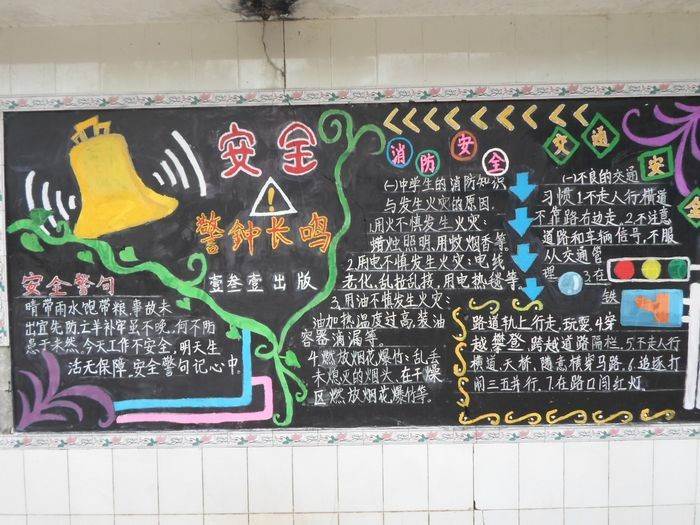 安全
警鈡长鸣
壹叁壹出版
安全警句
晴带雨水饱带粮,事故未
出宜先防.亡羊补牢虽不晚,何不防
患于未然.今天工作不安全,明天生
活无保障.安全警句记心中.
消防安全
㈠中学生的消防知识
与发生火灾的原因.
1.用火不慎发生火灾:
蜡烛照明,用蚊烟香等.
2.用电不慎发生火灾:电线
老化,乱拉乱扯,用电热毯等.
3.用油不慎发生火灾:
油加热温度过高,装油
容器滴漏等.
4.燃放烟花爆竹:乱丢
未熄灭的烟头,在干燥
区燃放烟花爆竹等.
交通安全
㈠不良的交通
习惯1.不走人行横道
不靠路右边走,2.不注意
道路和车辆信号,不服
从交通管
理 3.在
铁
路道轨上行走,玩耍.4.穿
越攀登 跨越道路隔栏.5.不走人行
横道、天桥,随意横穿马路.6.追逐打
闹三五并行.7.在路口闯红灯.